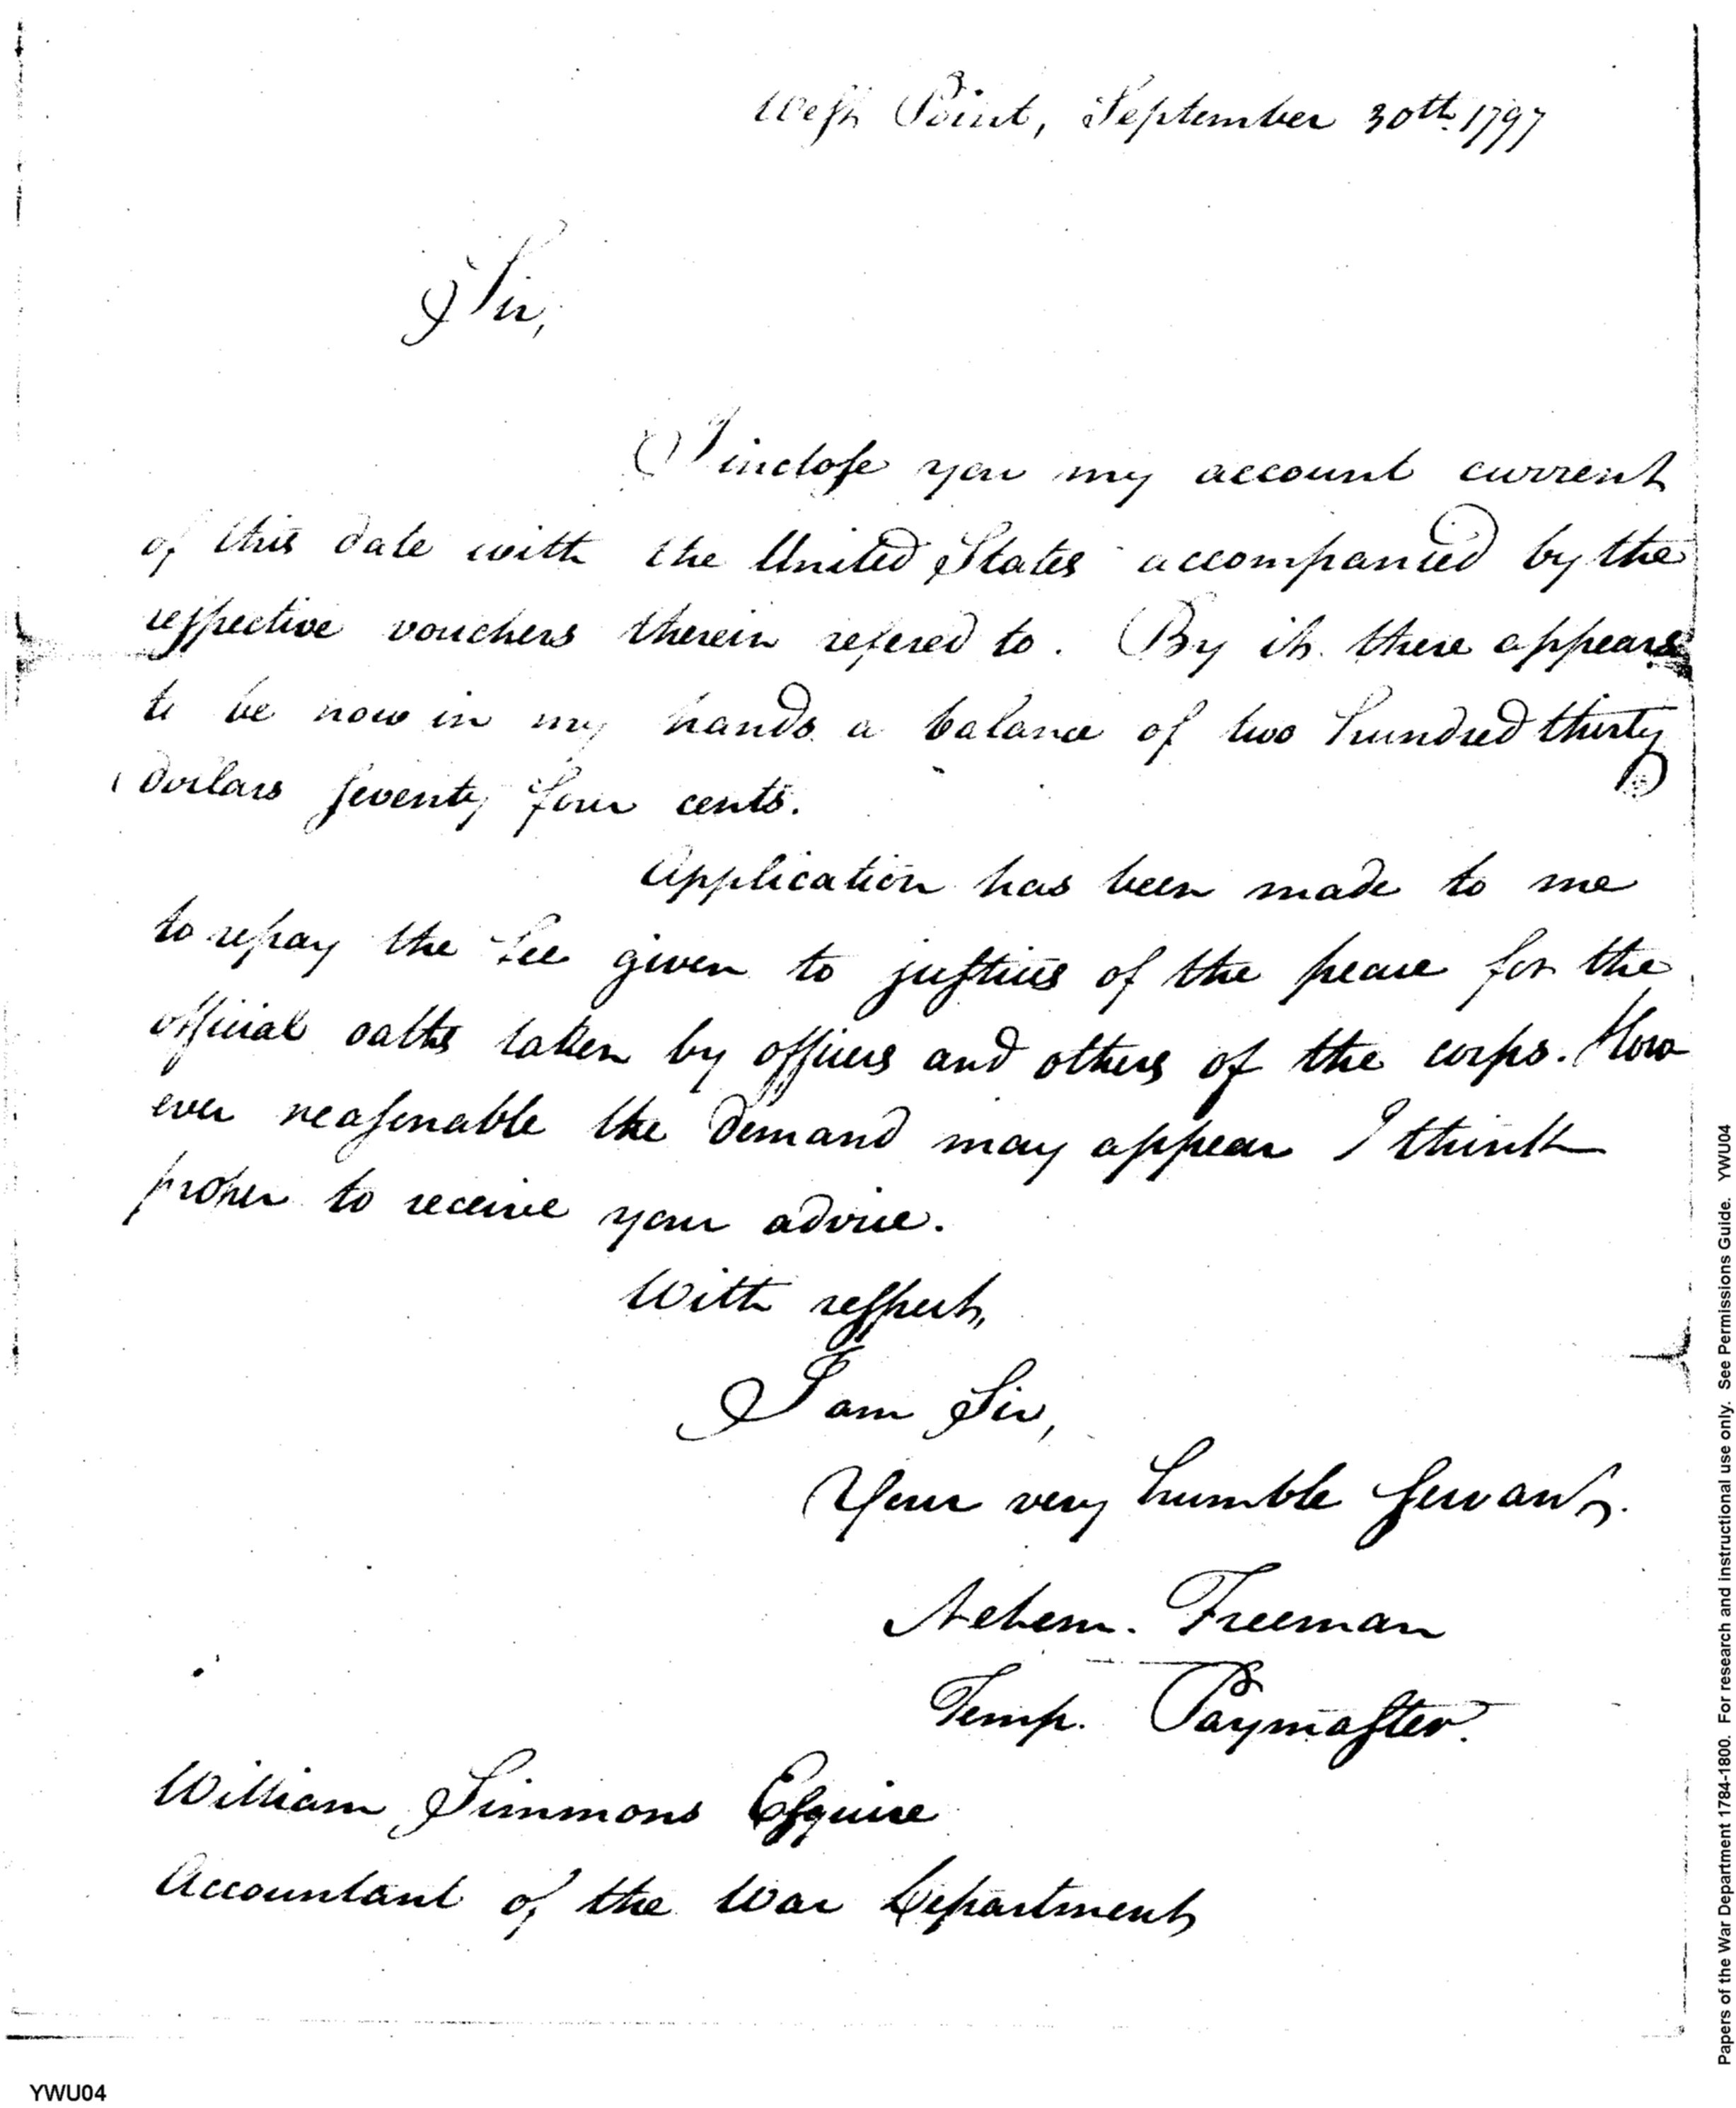 West Point, September 30th 1797
Sir,
I inclose you my account current
of this date with the United States accompanied by the
respective vouchers therein refered to. By it there appears
to be now in my hands a balance of two hundred thirty
dollars seventy four cents.
Application has been made to me
to repay the fee given to justices of the peace for the
official oaths taken by officers and others of the corps. How
ever reasonable the demand may appear I think
proper to receive your advice.
With respect,
I am Sir,
Your very humble servant.
Nehem. Freeman
Temp. Paymaster.
William Simmons Esquire
Accountant of the War Department
YWU04
Papers of the War Department 1784-1800. For research and instructional use only. See Permissions Guide. YWU04